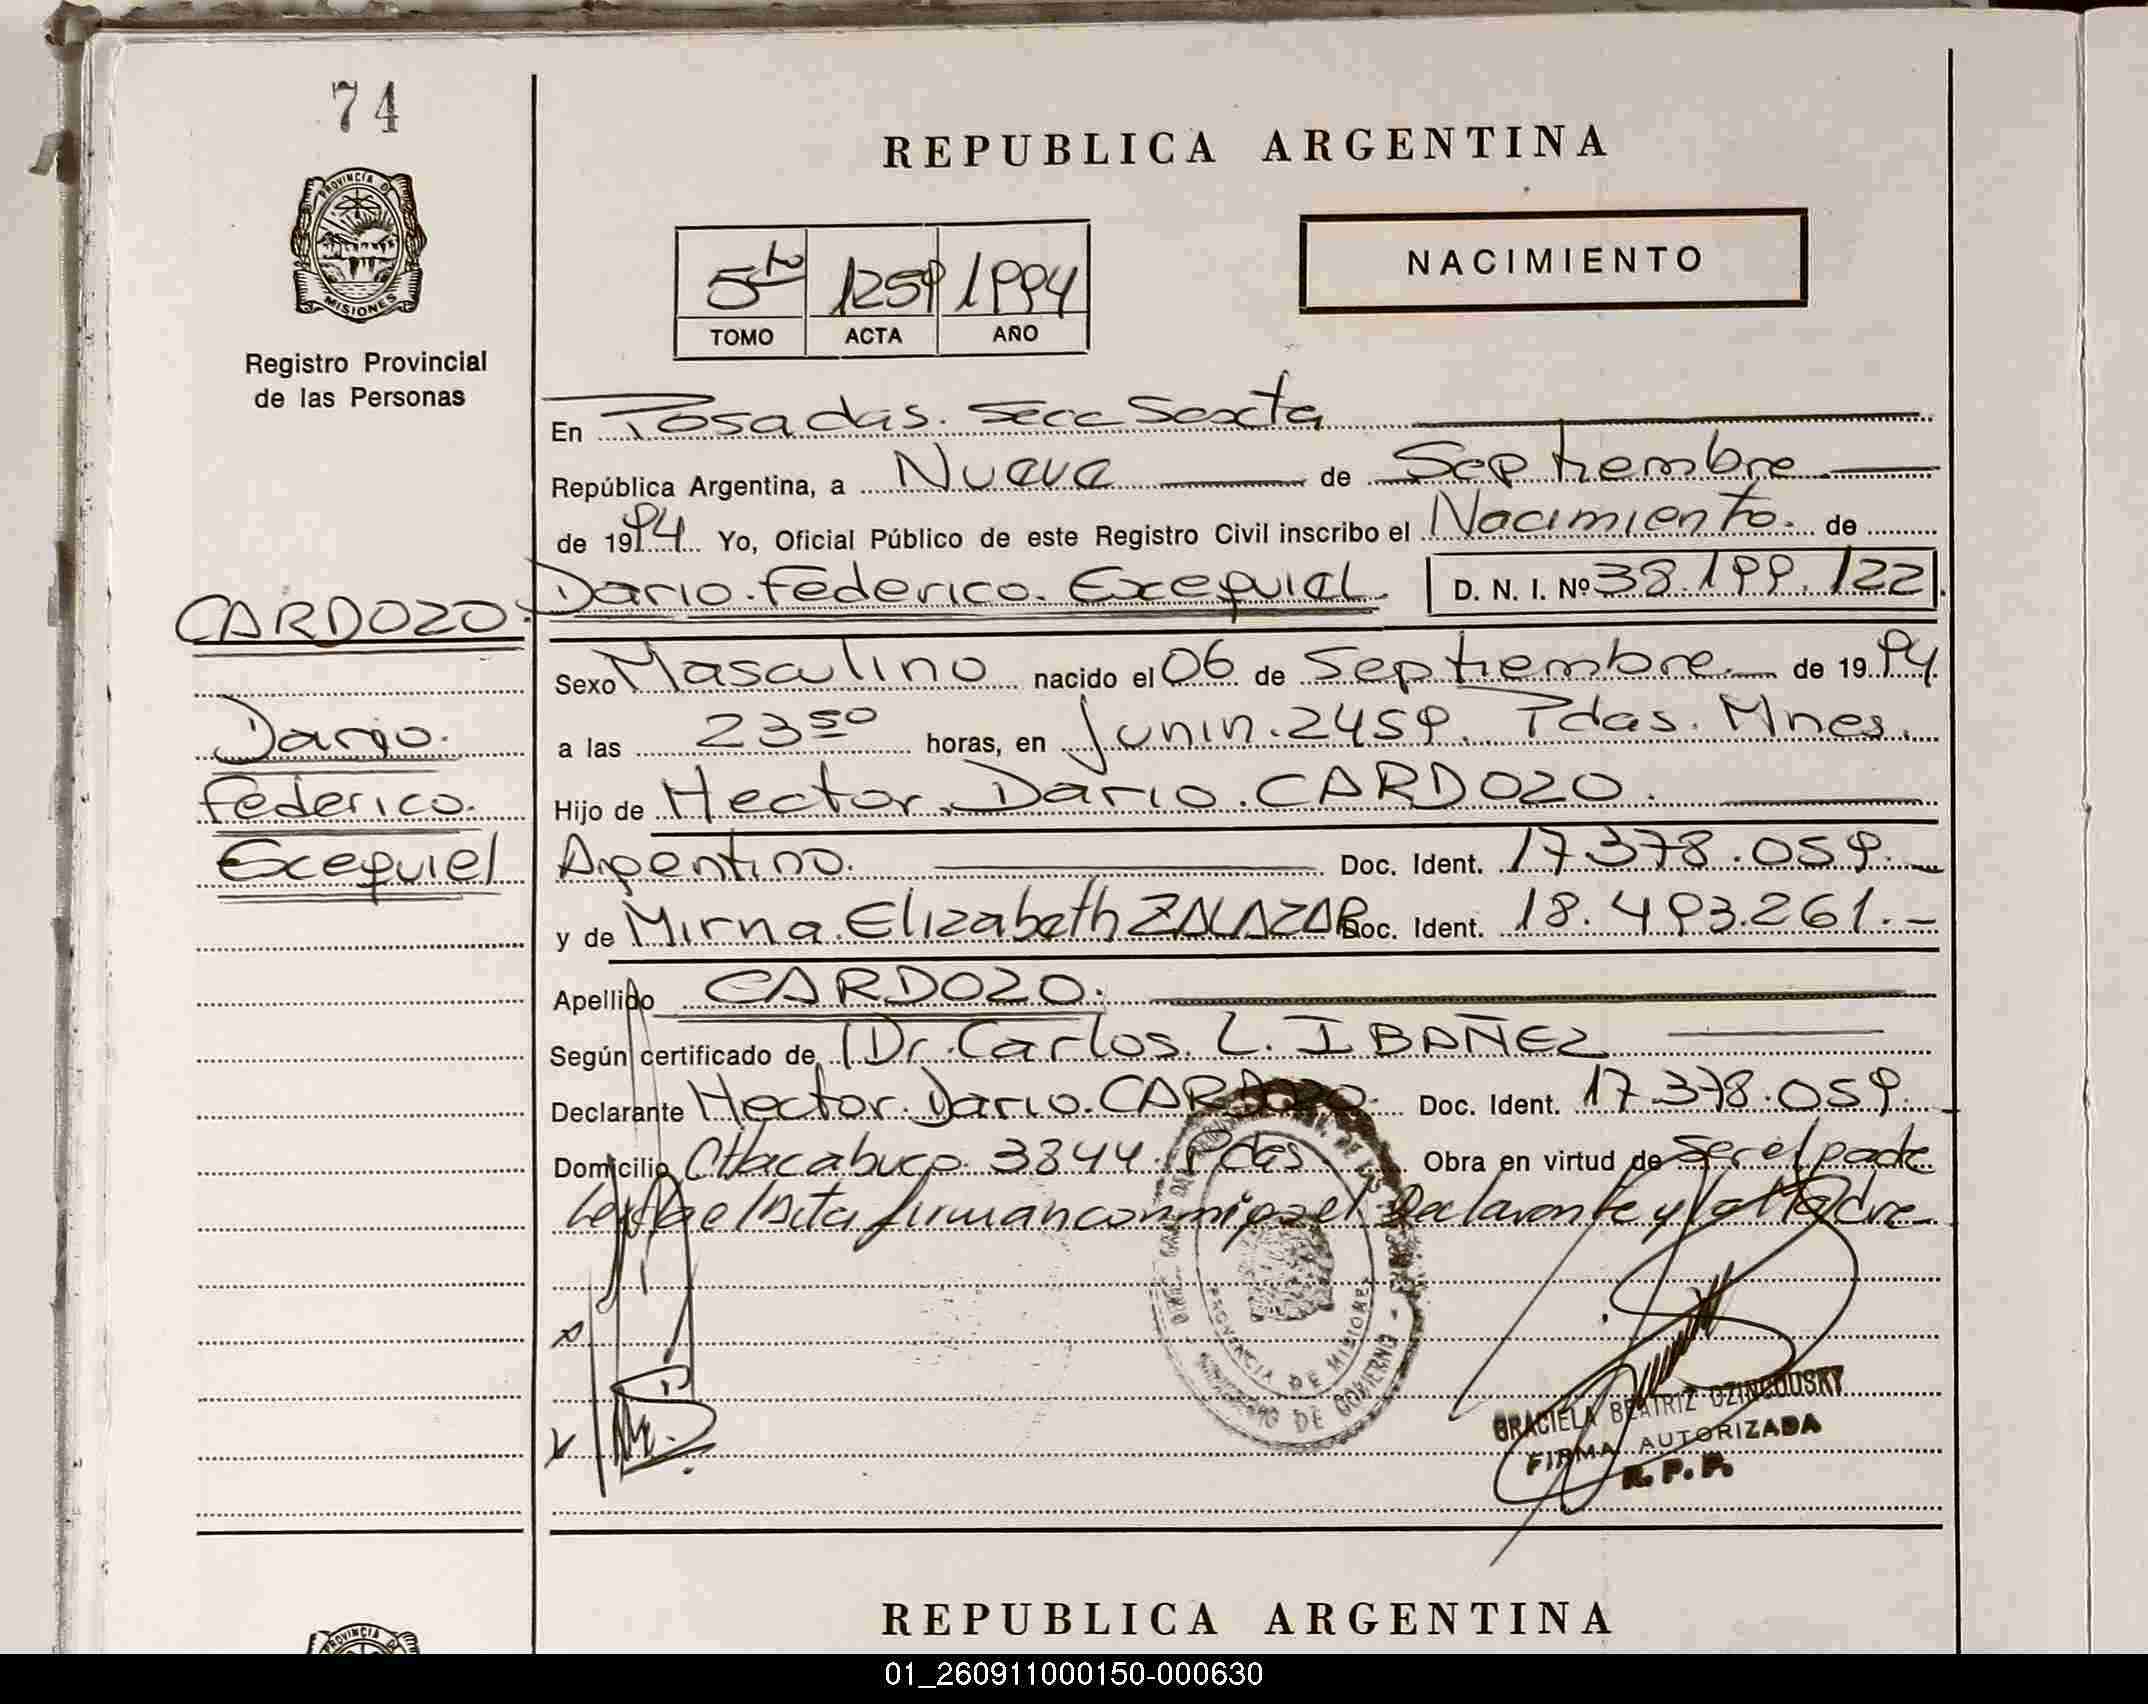 74
PROVINCIA DE
MISIONES
Registro Provincial
de las Personas
REPUBLICA ARGENTINA
NACIMIENTO
5to 1259 1994
TOMO ACTA AÑO
En Posadas. Secc Sexta
República Argentina, a Nueve de Septiembre
de 1994 Yo, Oficial Público de este Registro Civil inscribo el Nacimiento. de
CARDOZO. Dario. Federico. Exequiel. D. N. I. Nº 38.199.122
Sexo Masculino nacido el 06 de Septiembre. de 1994
Dario.
a las 23 50 horas, en Junin. 2459. Pdas. Mnes.
Federico.
Hijo de Hector. Dario. CARDOZO.
Exequiel
Argentino. Doc. Ident. 17.378.059.
y de Mirna. Elizabeth ZALAZAR Doc. Ident. 18.493.261.
Apellido CARDOZO.
Según certificado de Dr. Carlos. L. IBAÑEZ
Declarante Hector. Dario. CARDOZO. Doc. Ident. 17.378.059.
Domicilio Chacabuco. 3844. Pdas Obra en virtud de ser el padre
Leida el Acta firman conmigo el Declarante y la Madre
PROVINCIA DE MISIONES
MINISTERIO DE GOBIERNO
GRACIELA BEATRIZ DZINCOUSKY
FIRMA AUTORIZADA
R. P. P.
REPUBLICA ARGENTINA
PROVINCIA DE
01_260911000150-000630